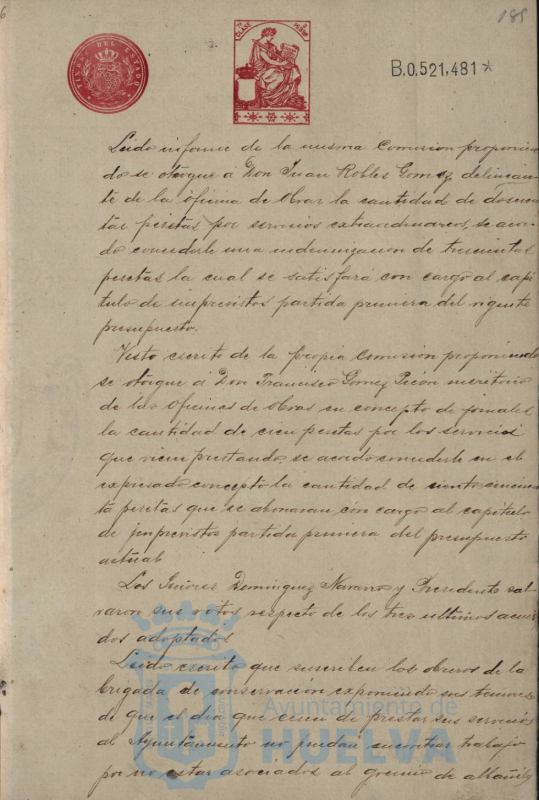 185
TIMBRE DEL ESTADO
CLASE
B.0.521,481*
Leido informe de la misma Comision proponien
do se otorgue á Don Juan Robles Gomez, delinean-
te de la oficina de Obras la cantidad de doscien
tas pesetas por servicios extraordinarios, se acor
dó concederle una indemnizacion de trescientas
pesetas la cual se satisfará con cargo al capi
tulo de imprevistos partida primera del vigente
presupuesto.
Visto escrito de la propia Comision proponiendo
se otorgue á Don Francisco Gomez Picon meritorio
de las Oficinas de Obras en concepto de jornales
la cantidad de cien pesetas por los servicios
que viene prestando, se acordó concederle en el
expresado concepto la cantidad de ciento cincuen
ta pesetas que se abonaran con cargo al capitulo
de imprevistos partida primera del presupuesto
actual
Los Señores Dominguez Navarro y Presidente sal
varon sus votos respecto de los tres ultimos acuer
dos adoptados
Leido escrito que suscriben los obreros de la
brigada de conservación exponiendo sus temores
de que el dia que cesen de prestar sus servicios
al Ayuntamiento no puedan encontrar trabajo
por no estar asociados al gremio de albañiles
Ayuntamiento de
HUELVA